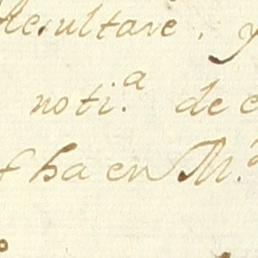 Resultare. y
noti.ª de e
fha en M.ª